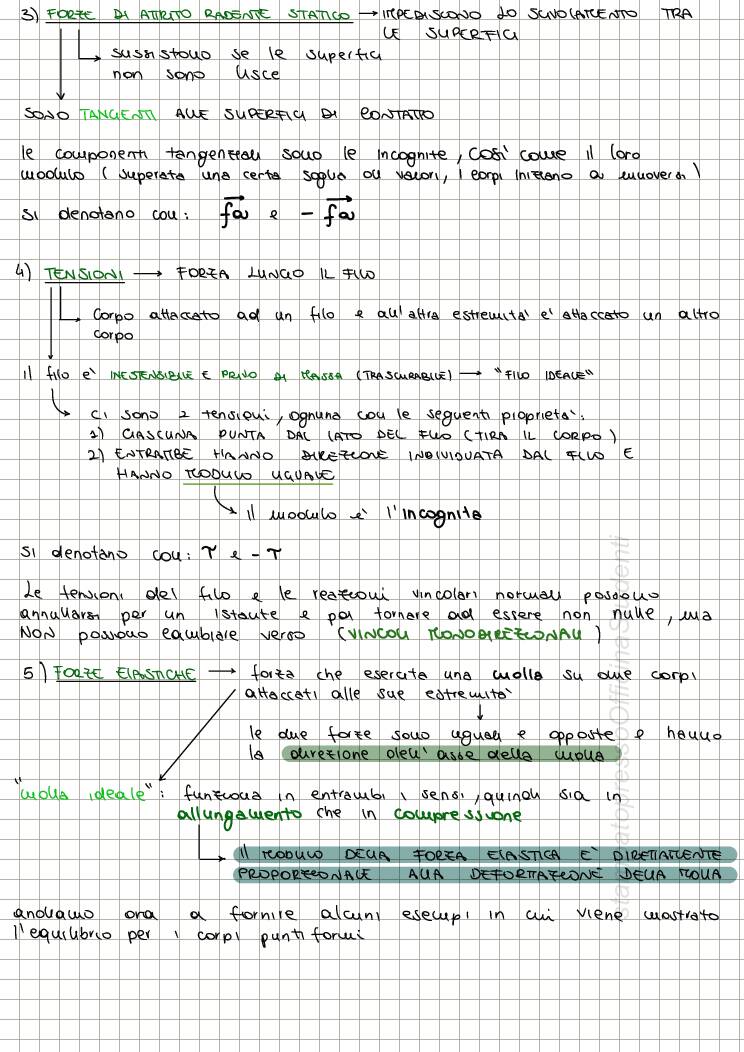 3) FORZE DI ATTRITO RADENTE STATICO → IMPEDISCONO LO SCIVOLAMENTO TRA
LE SUPERFICI
sussistono se le superfici
non sono lisce
SONO TANGENTI ALLE SUPERFICI DI CONTATTO
le componenti tangenziali sono le incognite, così come il loro
modulo (superata una certa soglia di valori, i corpi iniziano a muoversi)
si denotano con: fa e - fa
4) TENSIONI → FORZA LUNGO IL FILO
Corpo attaccato ad un filo e all'altra estremità e' attaccato un altro
corpo
il filo e' INESTENSIBILE E PRIVO DI MASSA (TRASCURABILE) → "FILO IDEALE"
ci sono 2 tensioni, ognuna con le seguenti proprietà:
1) CIASCUNA PUNTA DAL LATO DEL FILO (TIRA IL CORPO)
2) ENTRAMBE HANNO DIREZIONE INDIVIDUATA DAL FILO E
HANNO MODULO UGUALE
il modulo e' l'incognita
si denotano con: τ e - τ
Le tensioni del filo e le reazioni vincolari normali possono
annullarsi per un istante e poi tornare ad essere non nulle, ma
NON possono cambiare verso (VINCOLI MONODIREZIONALI)
5) FORZE ELASTICHE → forza che esercita una molla su due corpi
attaccati alle sue estremità
le due forze sono uguali e opposte e hanno
la direzione dell'asse della molla
"molla ideale": funziona in entrambi i sensi, quindi sia in
allungamento che in compressione
Il MODULO DELLA FORZA ELASTICA E' DIRETTAMENTE
PROPORZIONALE ALLA DEFORMAZIONE DELLA MOLLA
andiamo ora a fornire alcuni esempi in cui viene mostrato
l'equilibrio per i corpi puntiformi
stampatopressoOfficinaStudenti